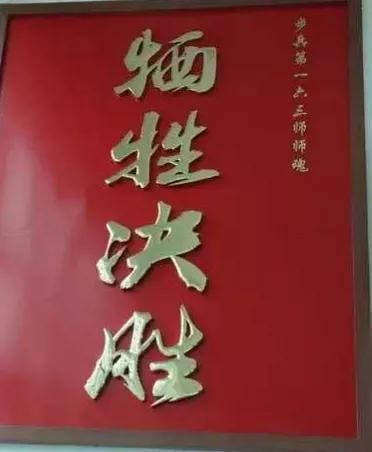 步兵第一六三师师魂
牺牲决胜